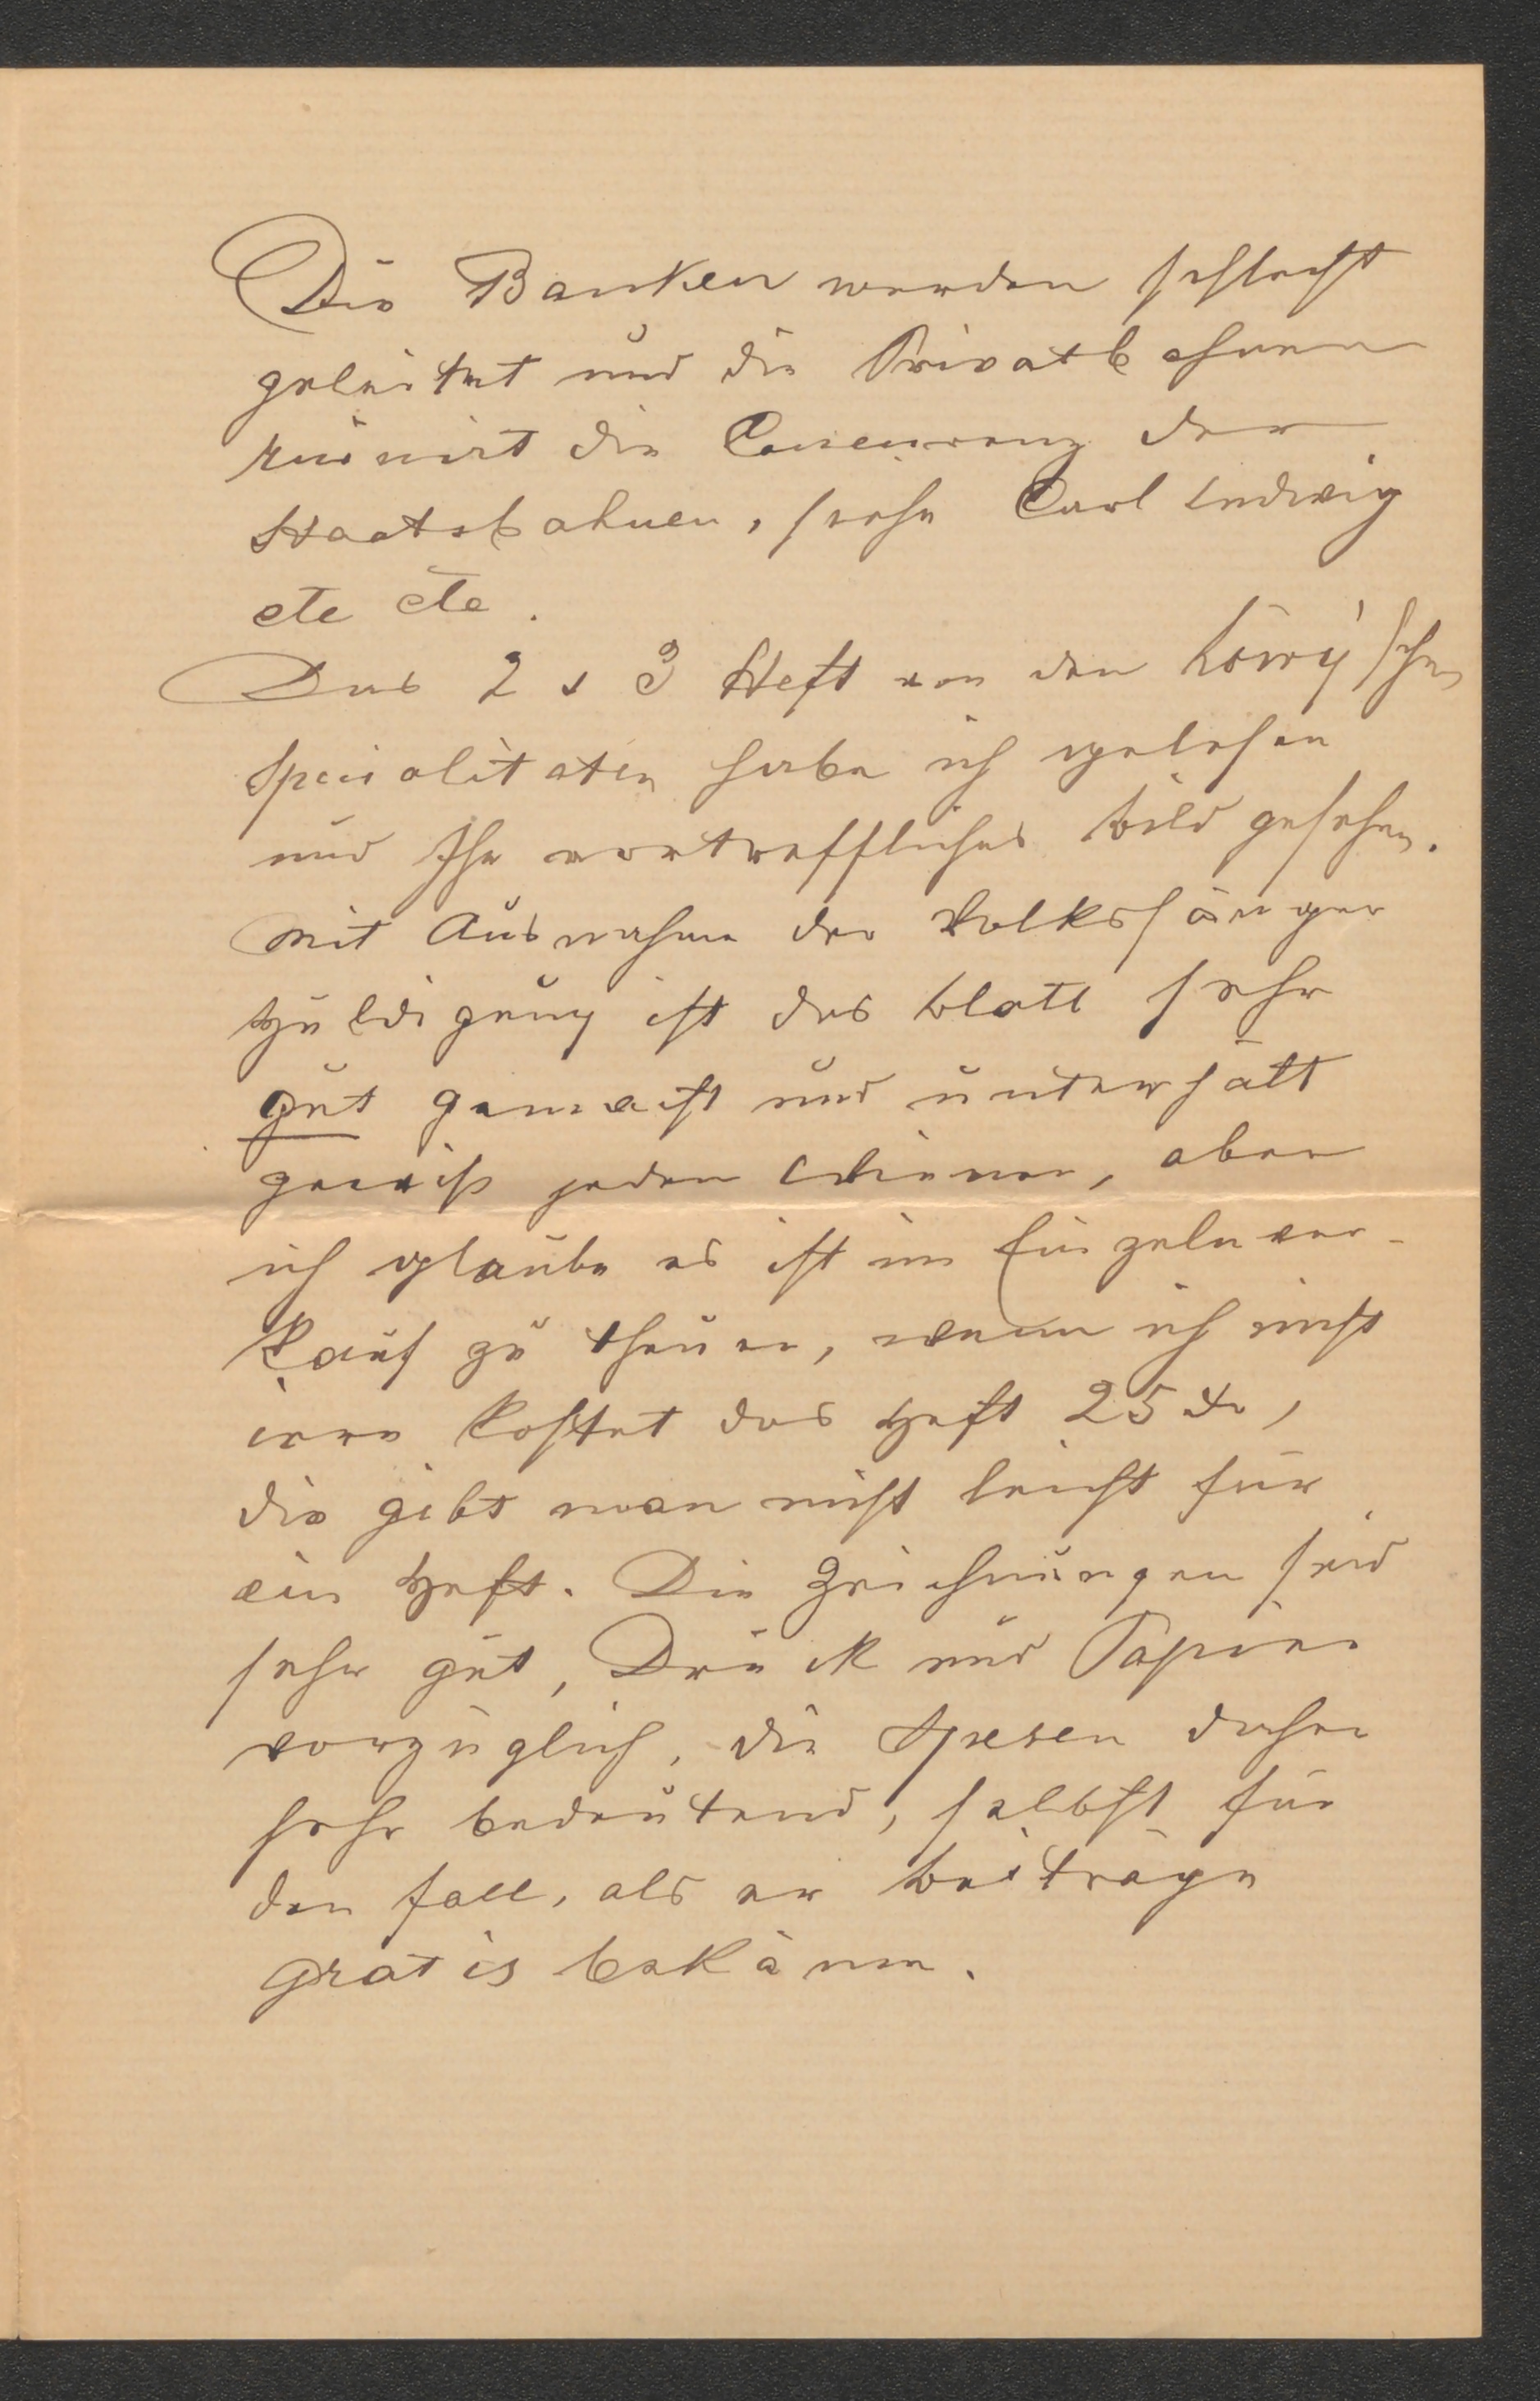 Die Banken werden schlecht
geleitet und die Privatbahnen
ruinirt die Concurenz der
Staatsbahnen, siehe Carl Ludwig
etc etc.
Das 2 & 3 Heft von den Löwy'schen
Specialitäten habe ich gelesen
und Ihr vortreffliches Bild gesehen.
Mit Ausnahme der Volkssänger
Huldigung ist das Blatt sehr
gut gemacht und unterhält
gewiß jeden Wiener, aber
ich glaube es ist im Einzelnver-
kauf zu theuer, wenn ich nicht
irre kostet das Heft 25 Xr,
die gibt man nicht leicht für
ein Heft. Die Zeichnungen sind
sehr gut, Druck und Papier
vorzüglich, die Spesen daher
sehr bedeutend, selbst für
den Fall, als er Beiträge
gratis bekäme.